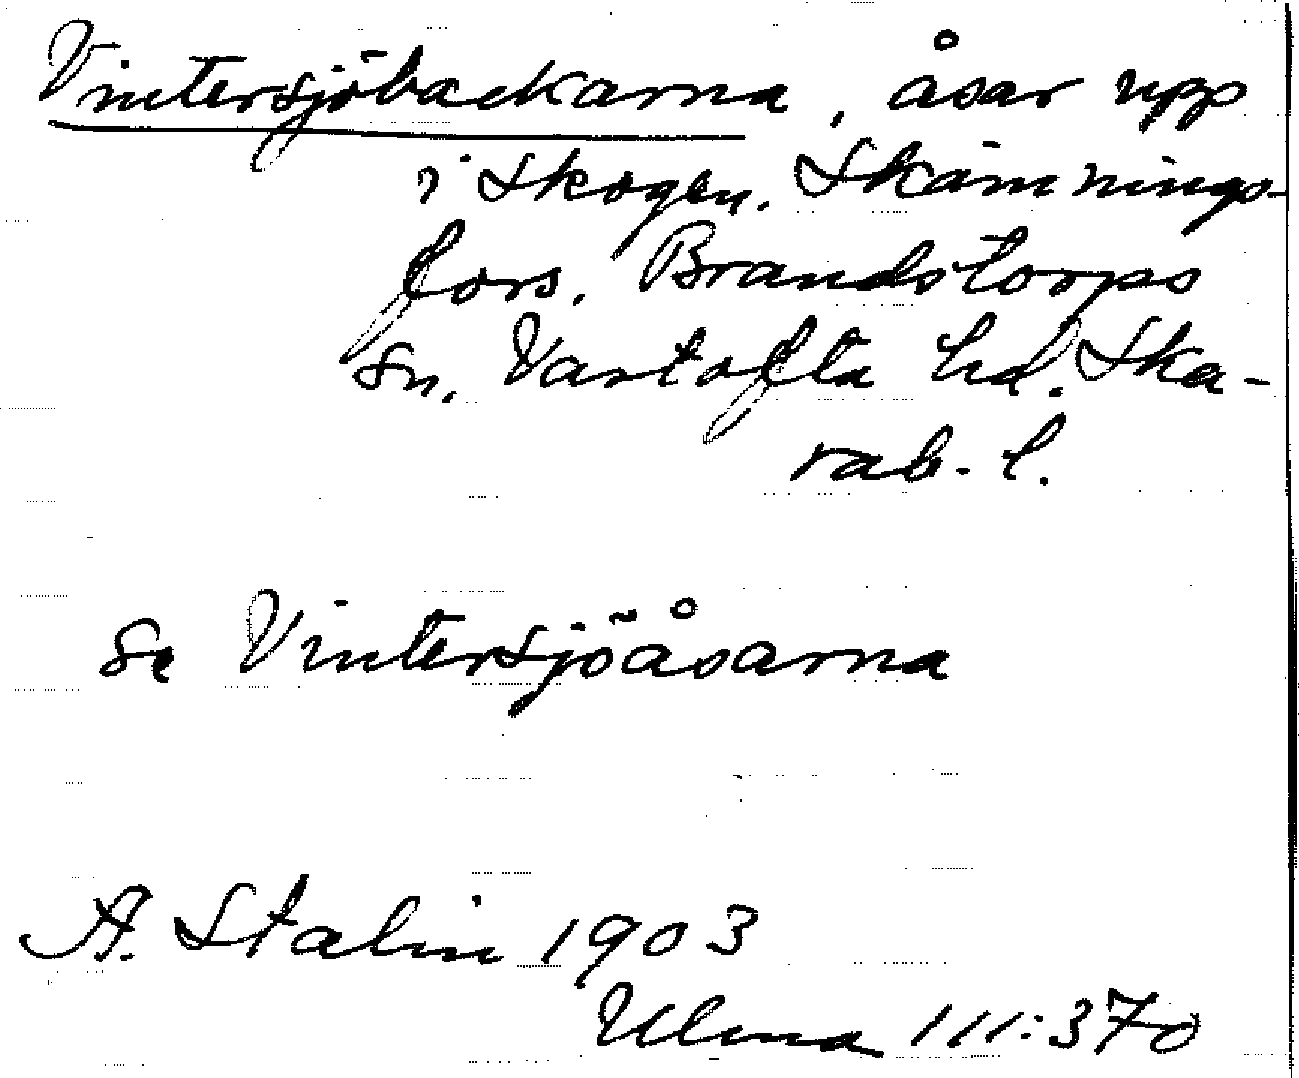 Vintersjöbackarna, åsar upp
i skogen. Skämnings-
fors. Brandstorps
sn. Vartofta hd. Ska-
rab. l.
Se Vintersjöåsarna
A. Stalin 1903
Ulma 111:370